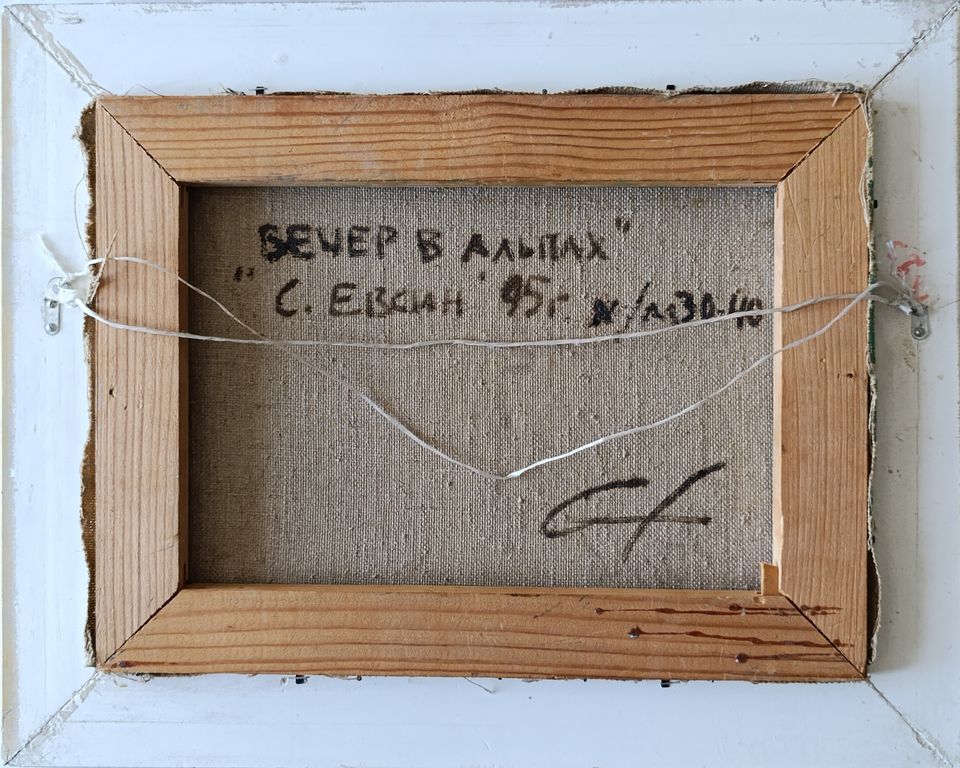 "ВЕЧЕР В АЛЬПАХ"
С. ЕВСИН '95г. х/м 30-40